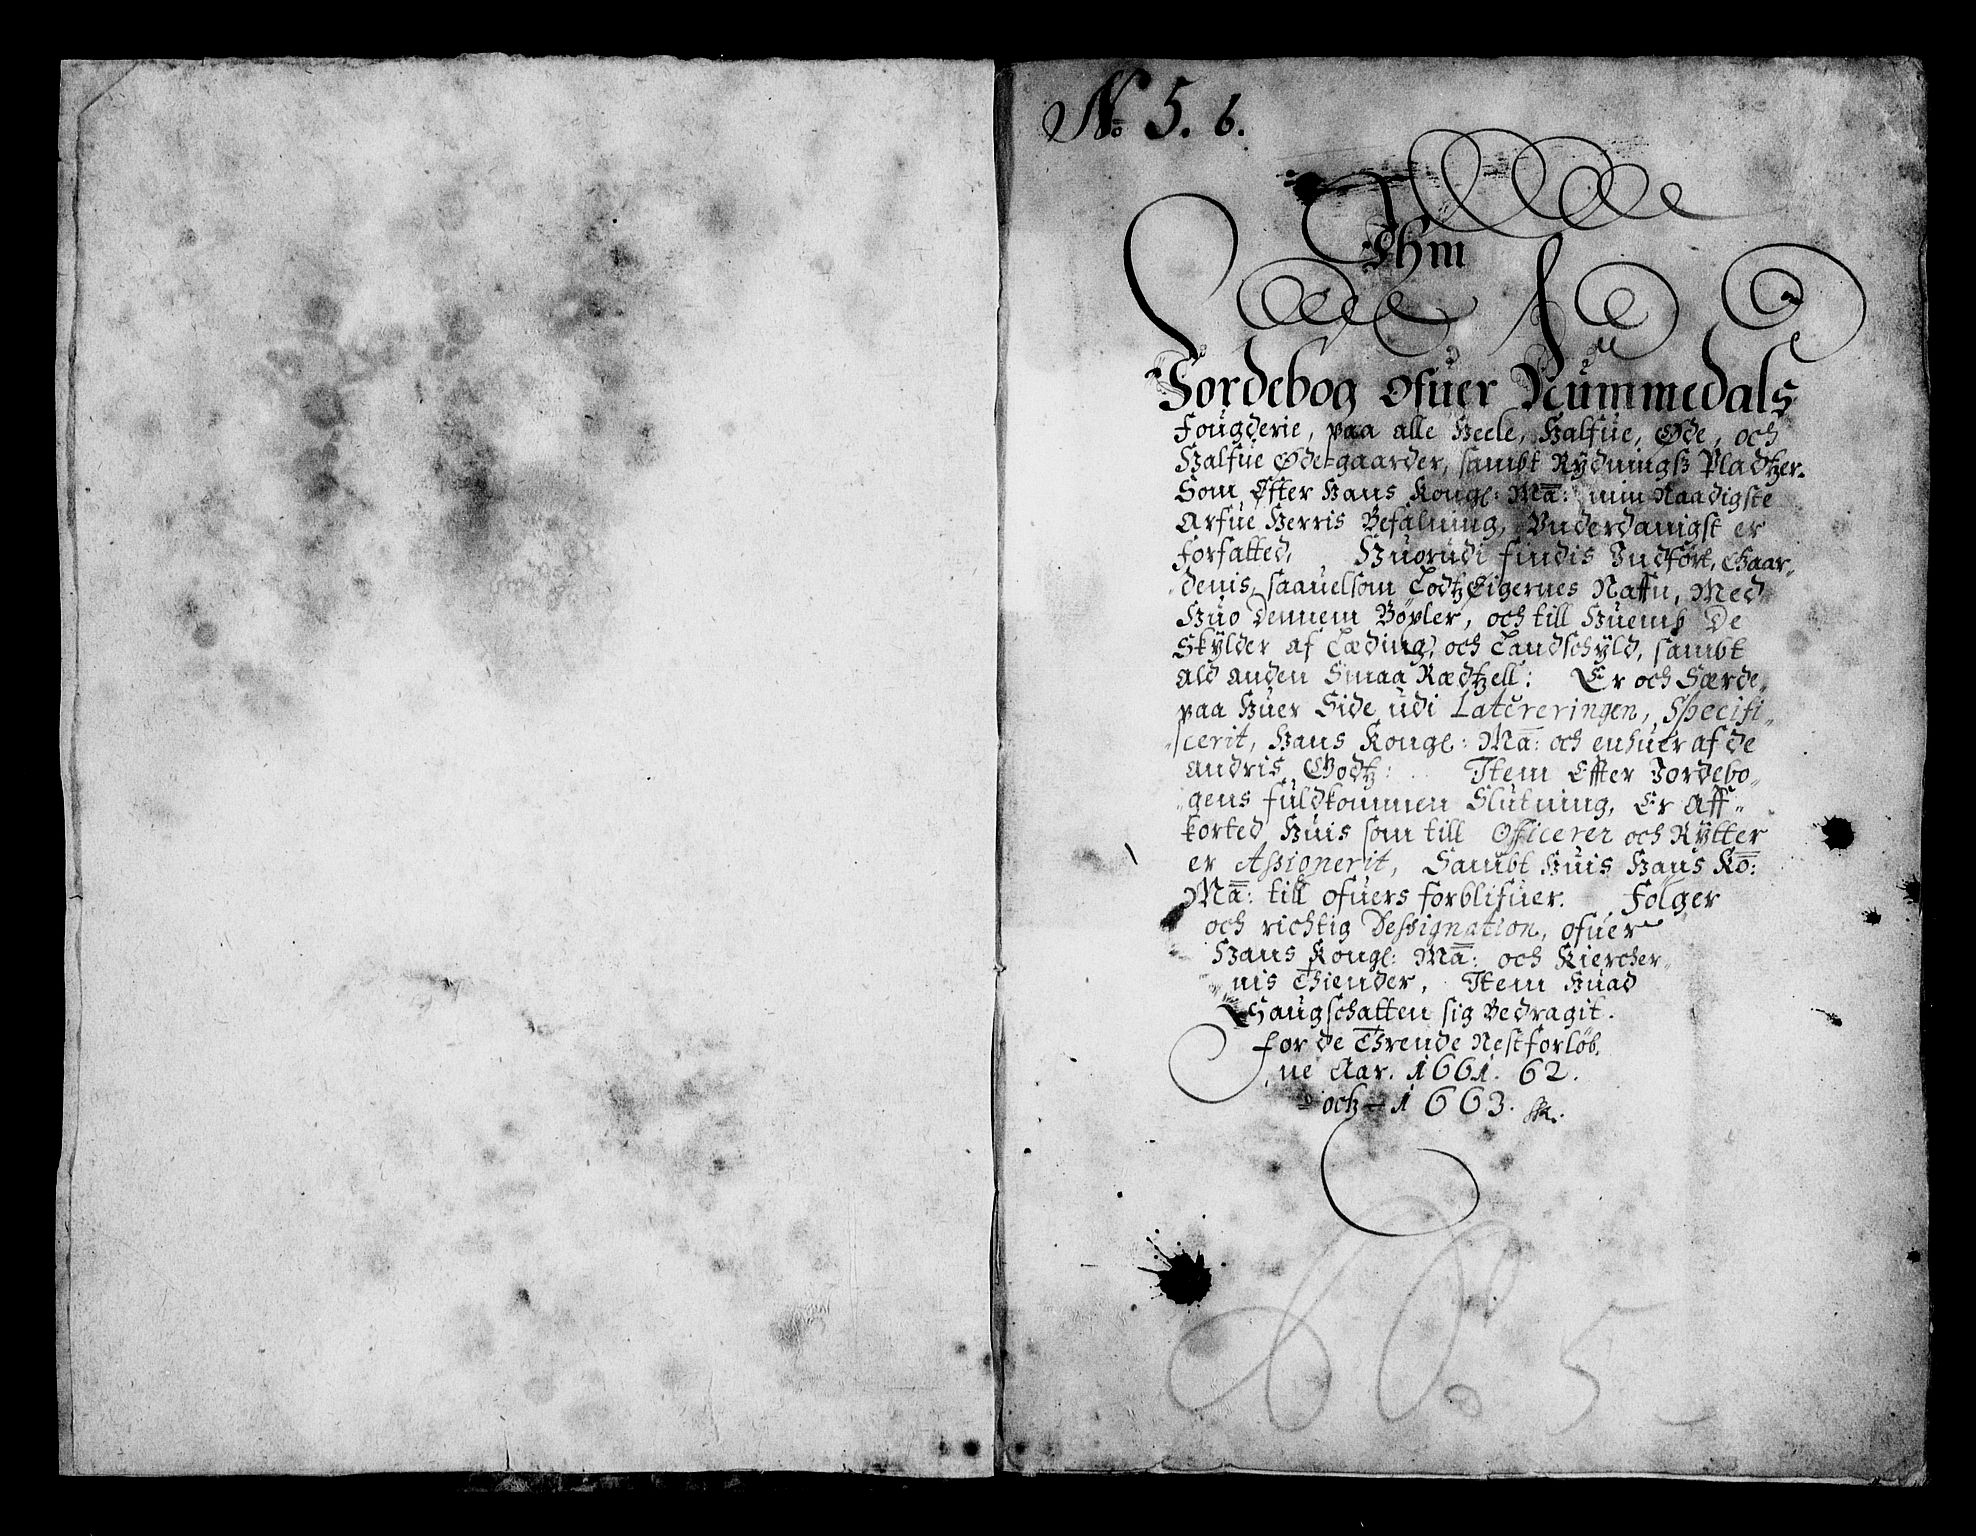 No 5. 6.
Ihm
Jordebog ofuer Nummedals
Fougderie, paa alle Heele, Halfue, Øde, och
Halfue Øde-gaarder, sambt Rydningß Pladtzer.
Som Efter Hans Kongl: Ma: min Naadigste
Arfue Herris Befalning, Vnderdanigst er
forfatted, Huorudi findis Indfört, Gaar-
denis, saauelsom Lodtz Eigernes Naffn, Med
Huo Dennem Böxler, och till Huemb De
Skylder af Leding, och Landschyld, sambt
ald anden Smaa Rædtzell: Er och Særde,
paa Huer Side udi Latereringen, Specifi-
cerit, Hans Kongl: Ma: och enhuer af de
andris Godtz: Item Effter Jordebo-
gens fuldkommen Slutning, Er aff-
korted Huis som till Officerer och Rytter
er Assignerit, Sambt Huis Hans Ko:
Ma: till ofuers forblifuer. Fölger
och richtig Dessignation, ofuer
Hans Kongl: Ma: och Kiercher-
nis Thiender, Item Huad
Haugschatten sig Bedragit.
for de Thrende Nestforlöb,
ne Aar. 1661. 62.
och 1663.
No 5